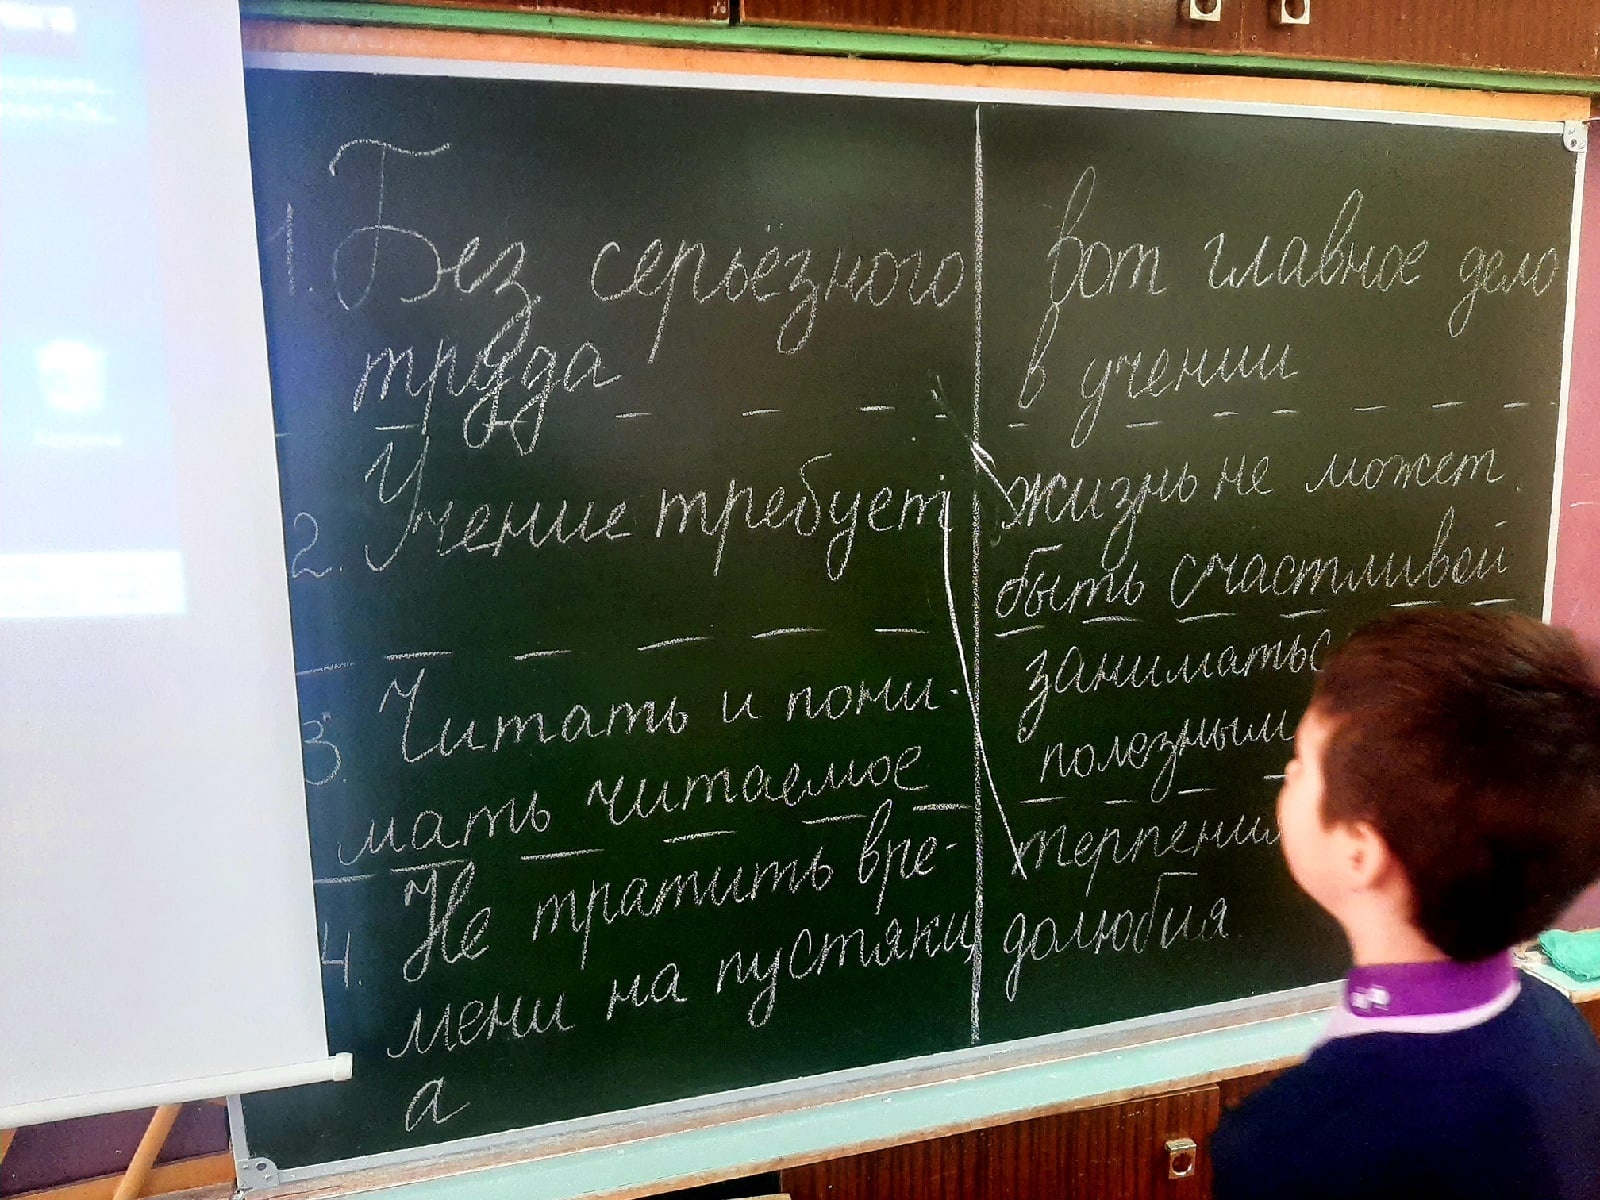 1. Без серьёзного
труда
2. Учение требует
3. Читать и пони-
мать читаемое
4. Не тратить вре-
мени на пустяки,
а
вот главное дело
в учении
жизнь не может
быть счастливой
долюбия